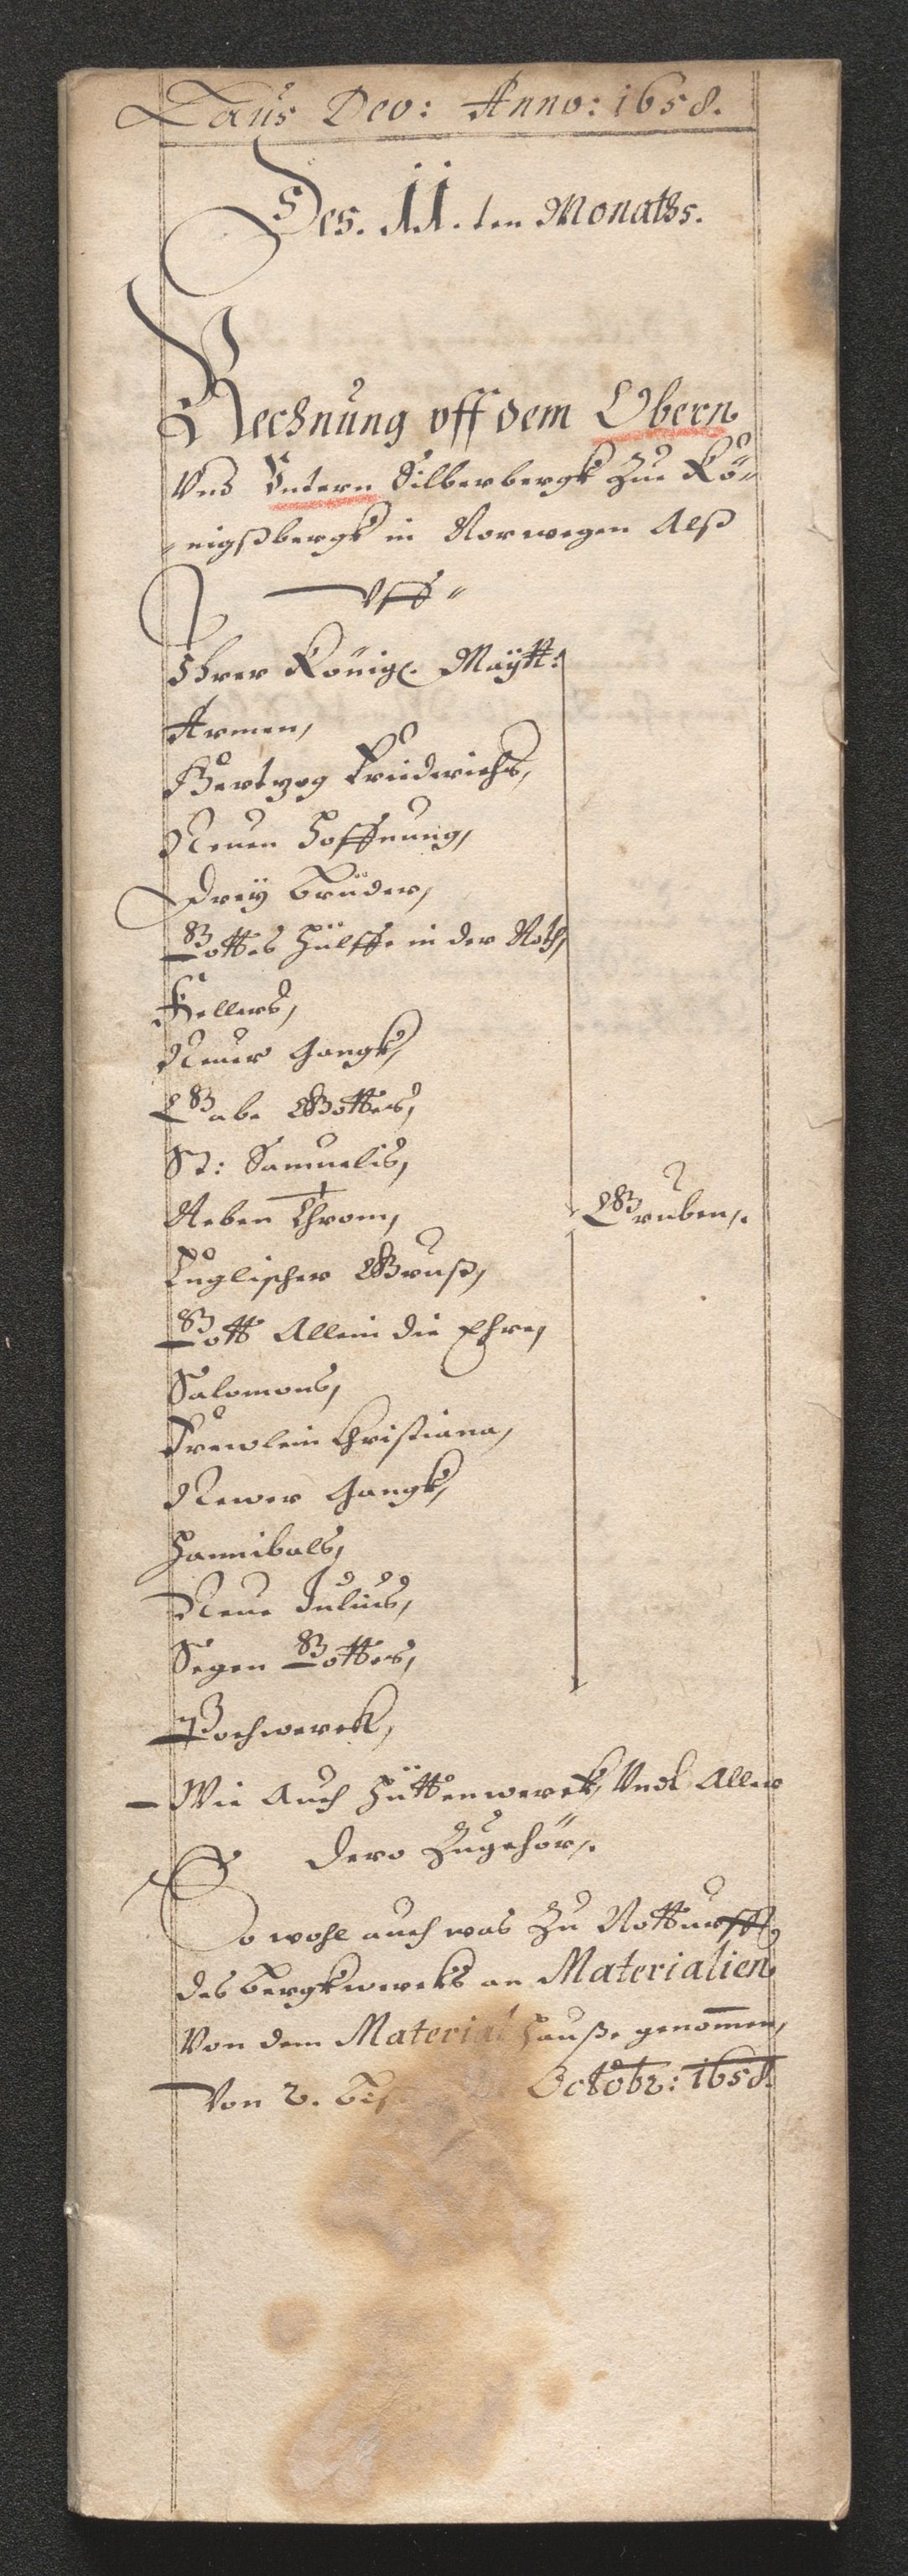 Laus Deo: Anno: 1658.
Des. 11. ten Monaths.
Rechnung vff dem Obern
Vnd Vntern Silberbergk Zue Kö-
nigßbergk in Norwegen Alß
Vff
Ihrer Königl. Maÿtt:
Armen,
Hertzog Friederichs,
Neuen Hoffnung,
Dreÿ Brüder,
Gottes Hülffe in der Noth,
Kellers,
Neuer Gangk,
Gabe Gottes,
St: Samuelis,
Neben
Gruben,.
Englischer Gruß,
Gott Allein die Ehre,
Salomons,
Frewlein Christiana,
Newer Gangk,
Hannibals,
Neue Julius,
Segen Gottes,
Pochwerck,
Wie Auch Hüttenwerck, Vndt Aller
dero Zugehör,.
So wohl auch was Zu Notturfft
des Bergkwercks an Materialien
Von dem Material Hauße genom̅en,
Von 2. Biß Octobr: 1658.